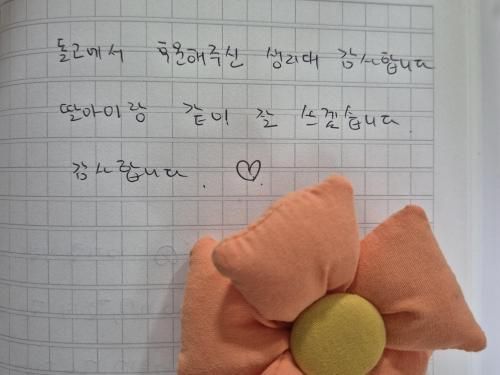 돌고에서 후원해주신 생리대 감사합니다
딸아이랑 같이 잘 쓰겠습니다.
감사합니다. ♡